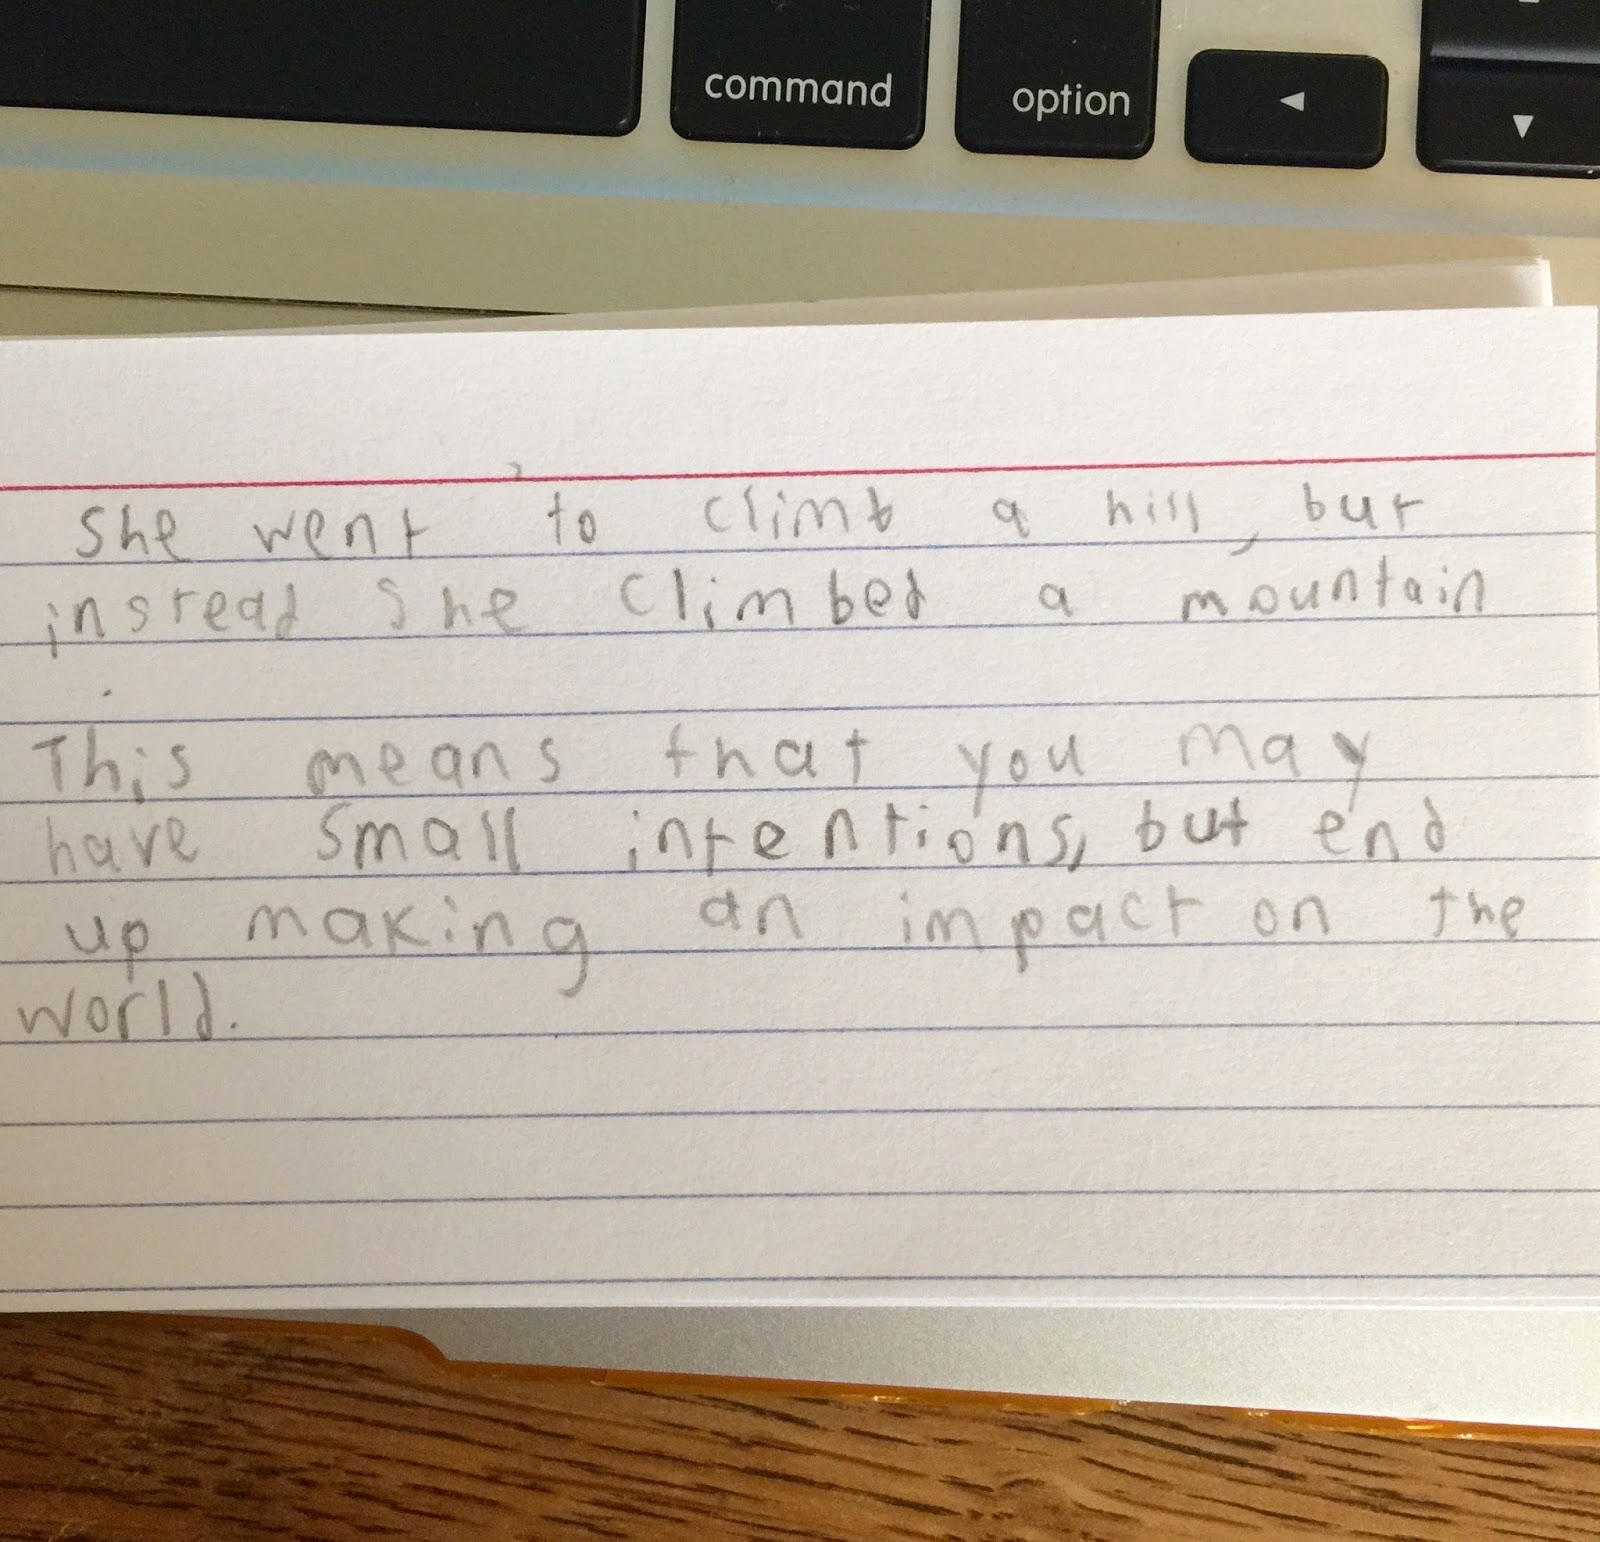 command option ◄
▼
She went to climb a hill, but
instead she climbed a mountain
.
This means that you may
have small intentions, but end
up making an impact on the
world.